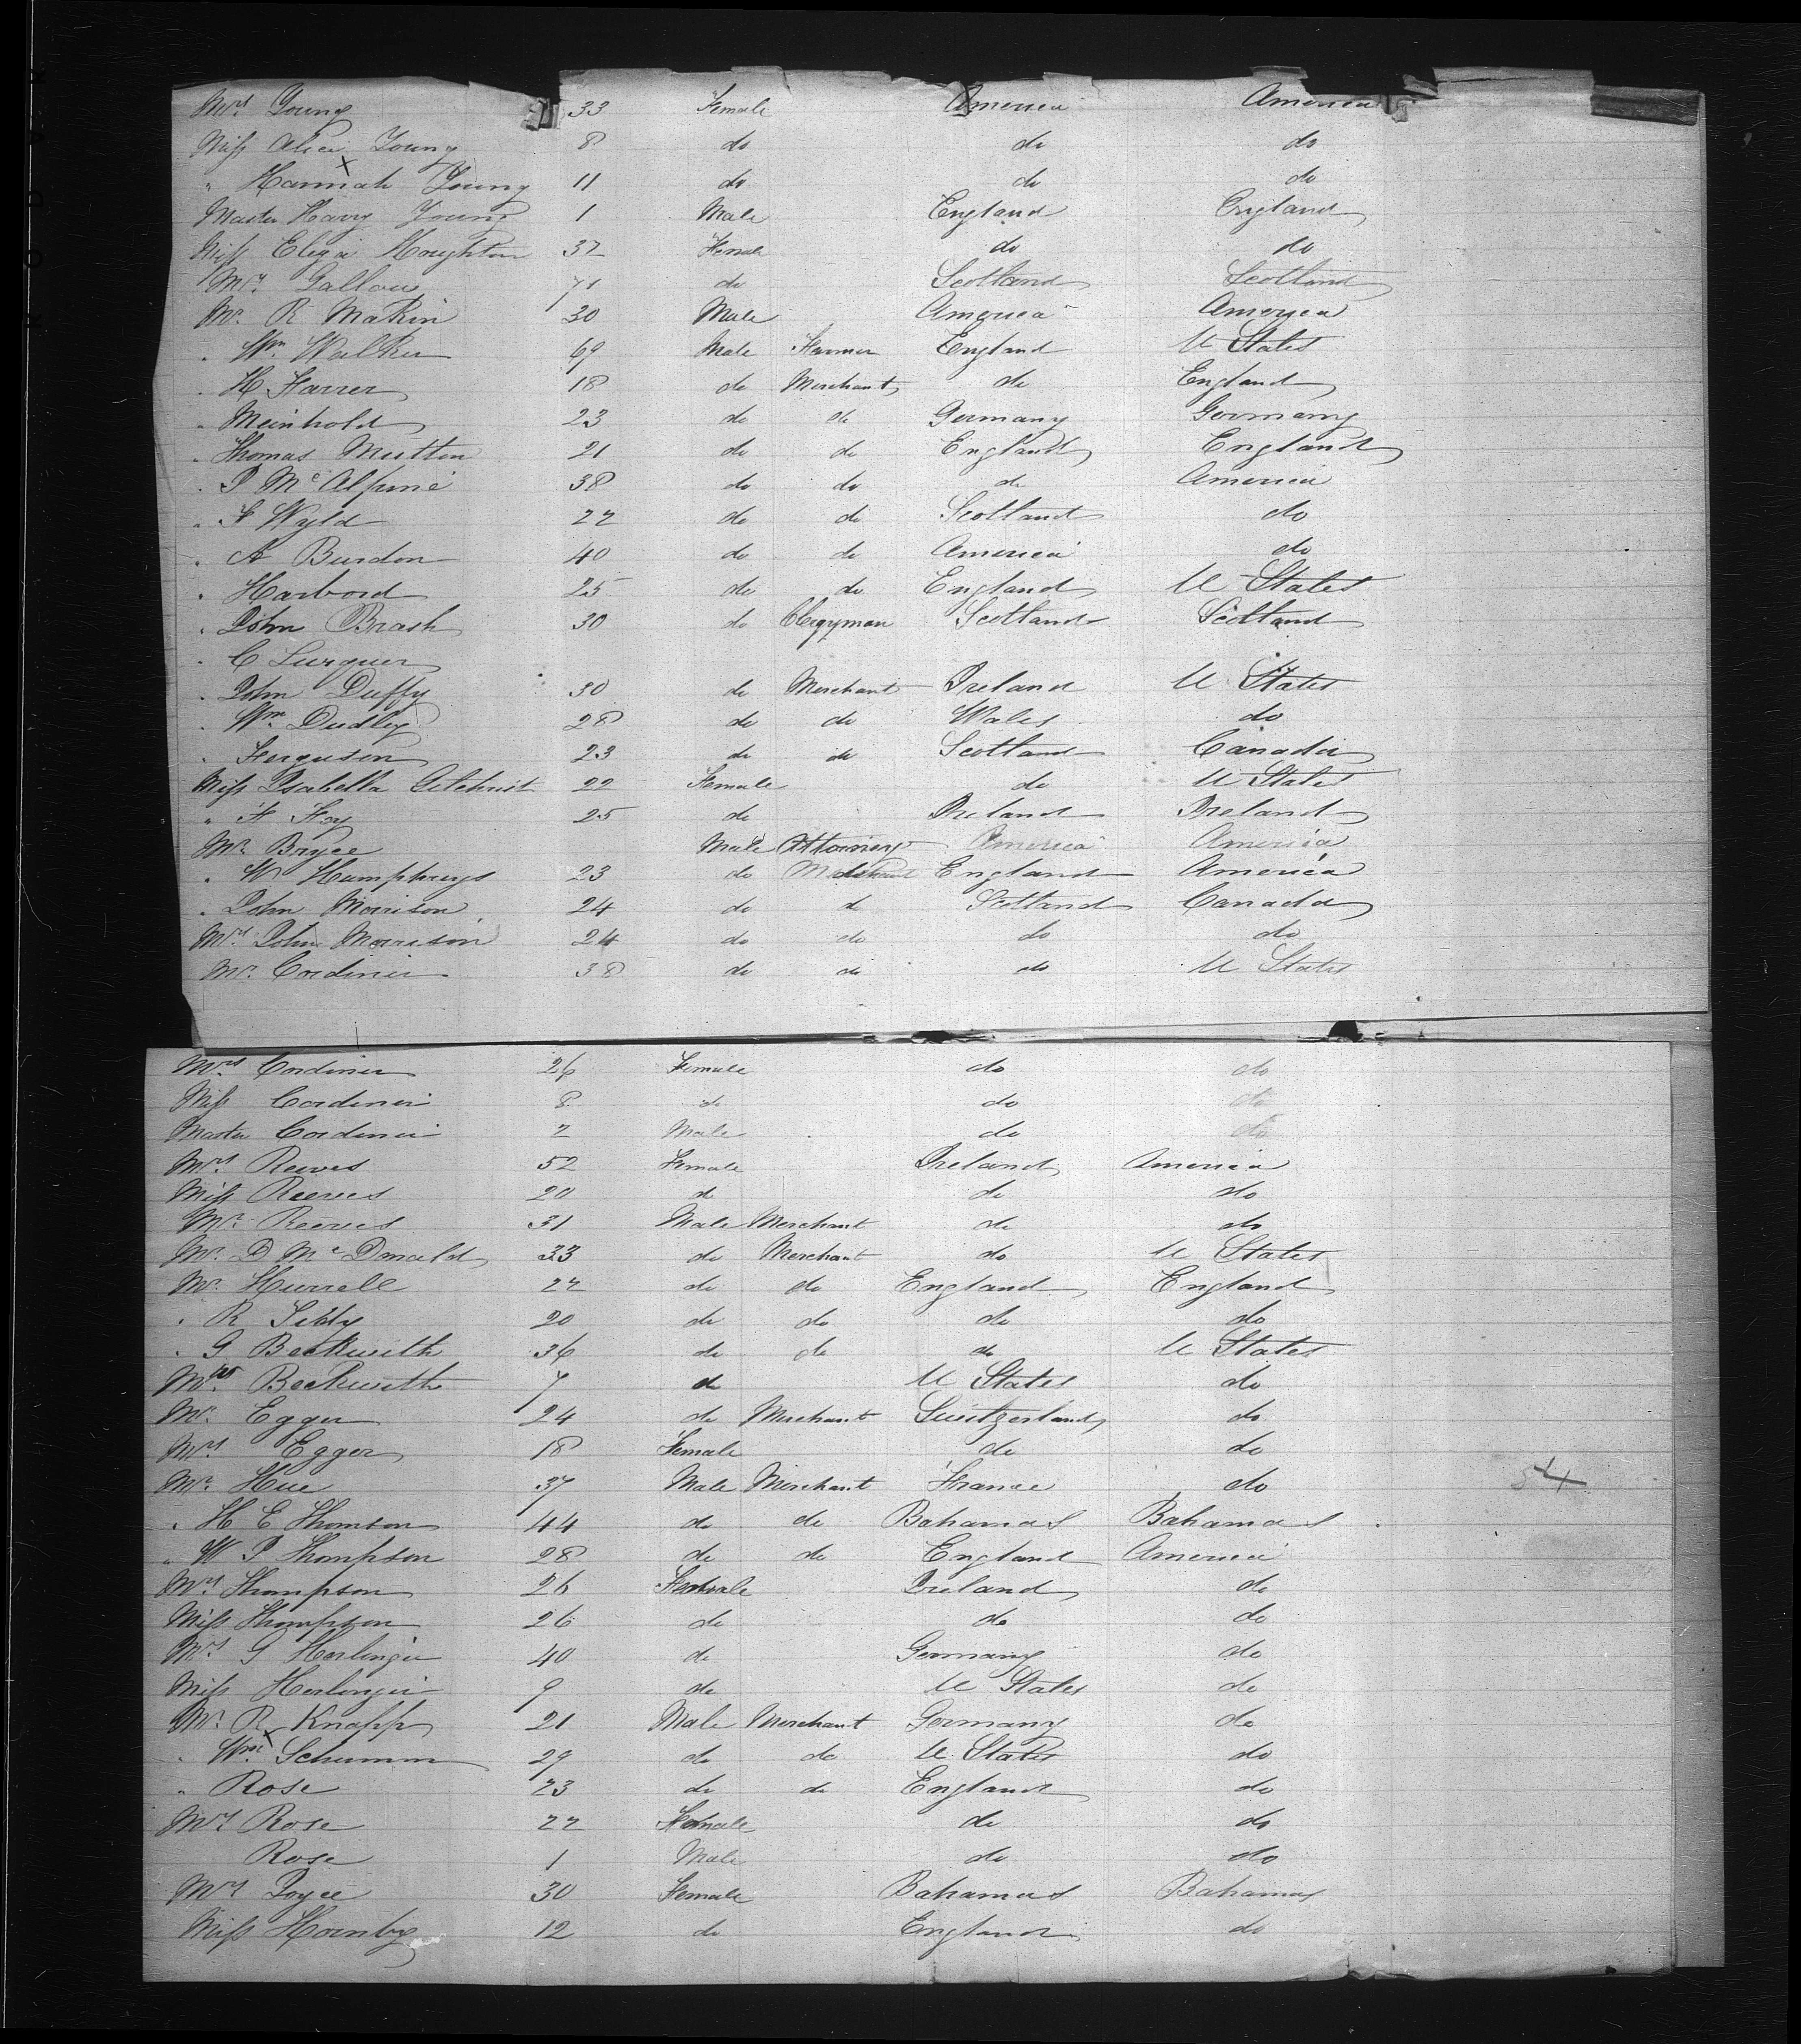 Mrs Young 33 Female America America
Miss Alice Young 8 do do do
" Hannah Young 11 do do do
Master Harry Young 1 Male England England
Miss Eliza Houghton 32 Female do do
Mrs Gallow 71 do Scotland Scotland
Mr. R Makin 30 Male America America
" Wm Walker 69 Male Farmer England U States
" H Farrer 18 do Merchant do England
" Meinhold 23 do do Germany Germany
" Thomas Mutton 21 do do England England
" P McAlpine 38 do do do America
" F Wyld 22 do do Scotland do
" A Burdon 40 do do America do
" Harbord 25 do do England U States
" John Brash 30 do Clergyman Scotland Scotland
" C
" John Duffy 30 do Merchant Ireland U States
" Wm Dudley 28 do do Wales do
" Ferguson 23 do do Scotland Canada
Miss Isabella Gilchrist 22 Female do U States
" F Foy 25 do Ireland Ireland
Mr Bryce Male Attorney America America
" W Humphreys 23 do Merchant England America
" John Morrison 24 do do Scotland Canada
Mrs John Morrison 24 do do do do
Mr. Cordiner 38 do do do U States
Mrs Cordiner 26 Female do do
Miss Cordiner 8 do do do
Master Cordiner 2 Male do do
Mrs Reeves 52 Female Ireland America
Miss Reeves 20 do do do
Mr. Reeves 31 Male Merchant do do
Mr. D McDonald 33 do Merchant do U States
Mr. Hurrell 22 do do England England
" R 20 do do do do
" G Beckwith 36 do do do U States
Mrs Beckwith 7 do U States do
Mr. Egger 24 do Merchant Switzerland do
Mrs Egger 18 Female do do
Mr. Hue 37 Male Merchant France do
54
" H E Thomson 44 do do Bahamas Bahamas
" W P Thompson 28 do do England America
Mrs Thompson 26 Female Ireland do
Miss Thompson 26 do do do
Mrs G Herlinger 40 do Germany do
Miss Herlinger 9 do U States do
Mr. R Knapp 21 Male Merchant Germany do
" Wm Schumm 29 do do U States do
" Rose 23 do do England do
Mrs Rose 22 Female do do
Rose 1 Male do do
Mrs Joyce 30 Female Bahamas Bahamas
Miss Hornby 12 do England do